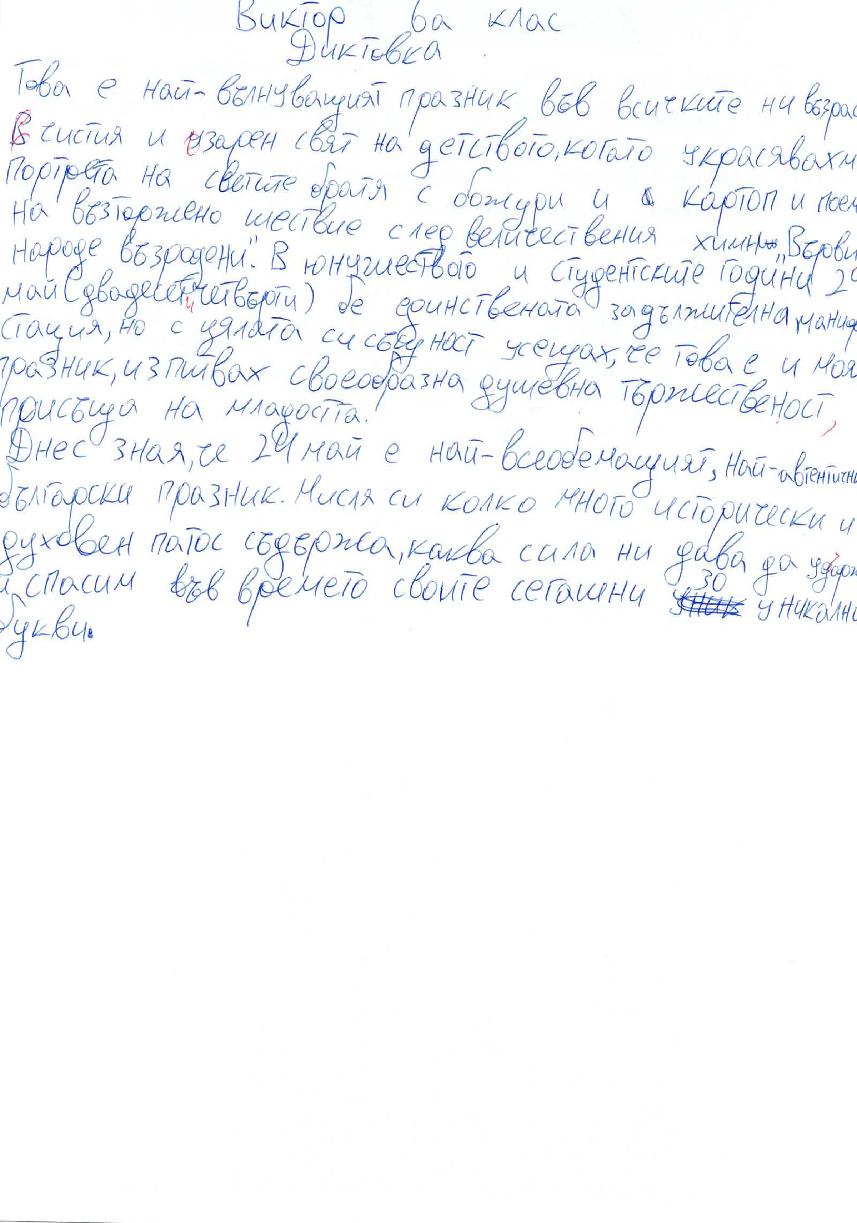 Виктор 6а клас
Диктовка
Това е най-вълнуващият празник във всичките ни възрас
В чистия и озарен свят на детството, когато украсявахм
портрета на светите братя с божури и картоп и поем
на възторжено шествие след величествения химн „Върви
народе възродени". В юношеството и студентските години 24
май (двадесет и четвърти) бе единствената задължителна маниф
стация, но с цялата си същност усещах, че това е и моя
празник, изпивах своеобразна душевна тържественост,
присъща на младостта.
Днес зная, че 24 май е най-всеобемащият, най-автентични
български празник. Мисля си колко много исторически и
духовен патос съдържа, каква сила ни дава да удърж
и спасим във времето своите сегашни 30 уникални
букви.